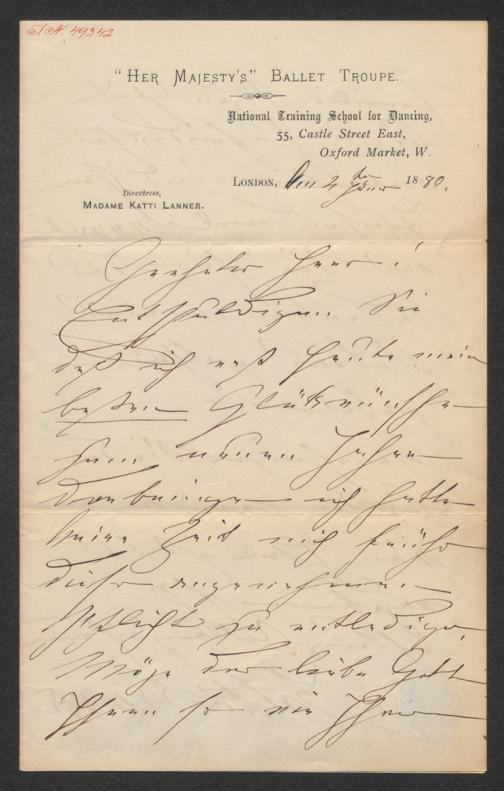 I.N. 49342
"HER MAJESTY'S" BALLET TROUPE.
National Training School for Dancing,
55, Castle Street East,
Oxford Market, W.
LONDON, Den 2 ten Jänner 1880.
Directress,
MADAME KATTI LANNER.
Geehrter Herr!
Entschuldigen Sie
daß ich erst heute mein
besten Glückwünsche
zum neuen Jahre
darbringe ich hatte
keine Zeit mich früher
dieser angenehmen
Pflicht zu entledigen
Möge der liebe Gott
Ihnen so wie Ihrer